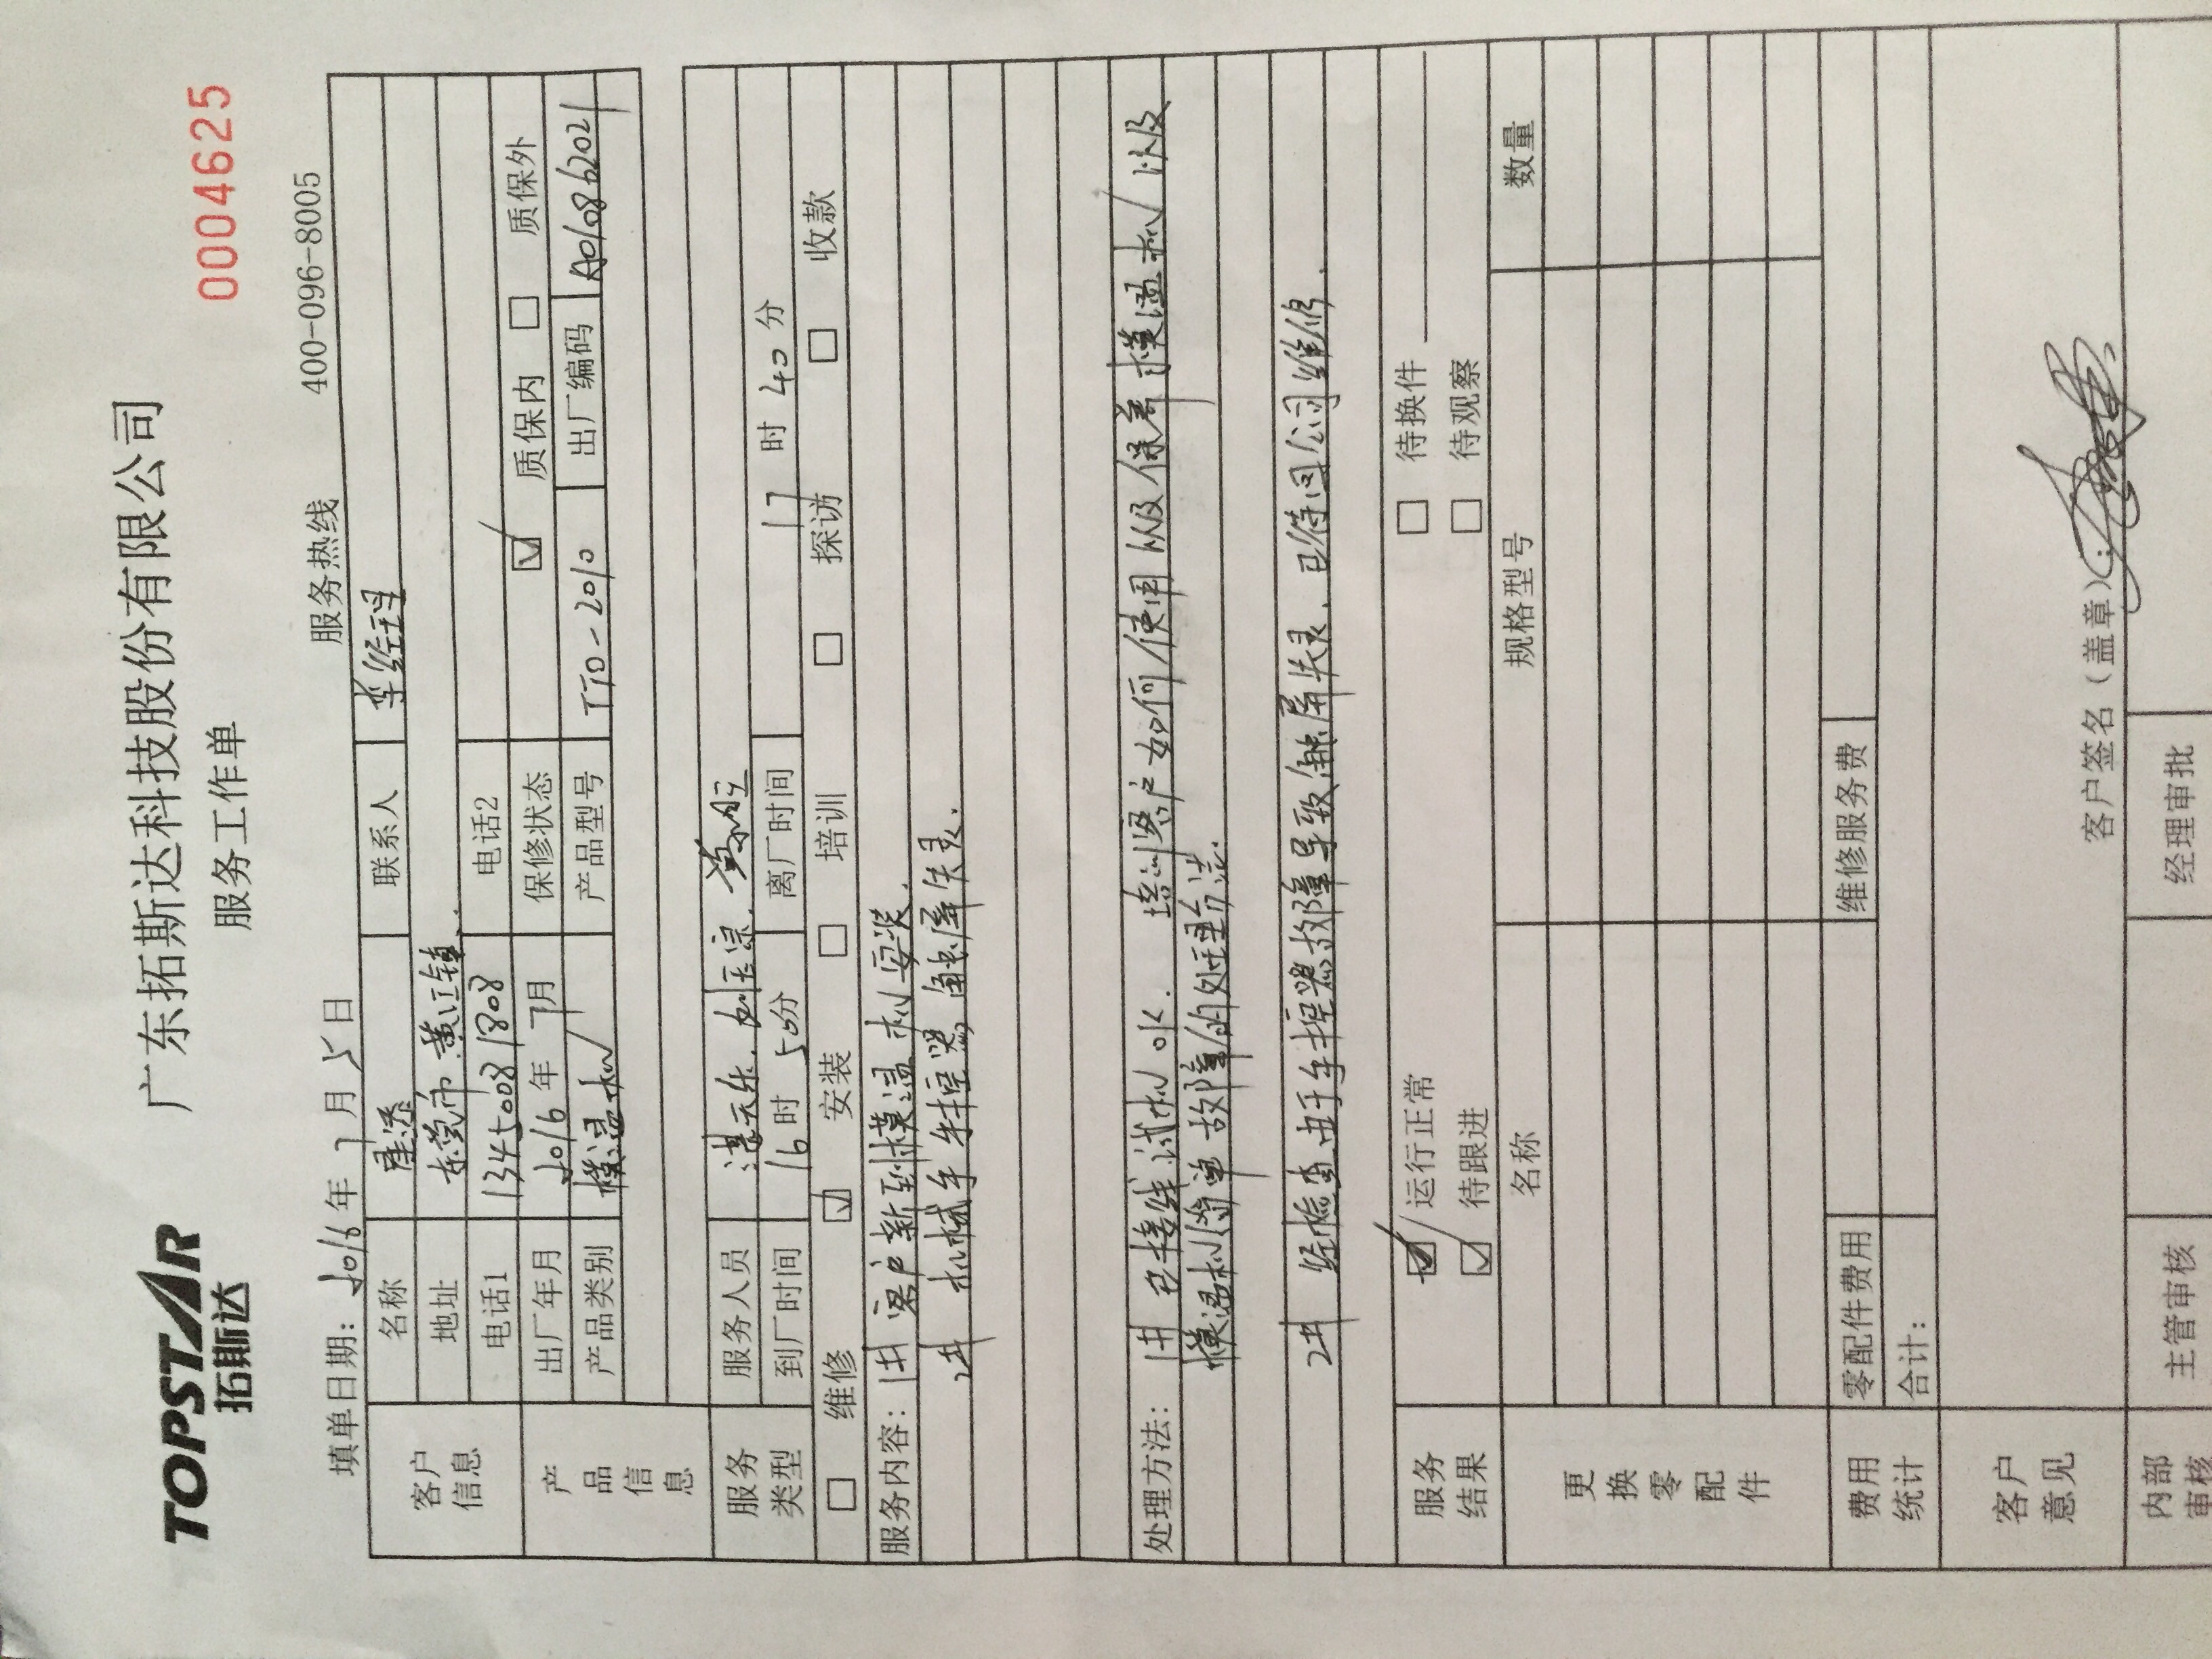 TOPSTAR
拓斯达
广东拓斯达科技股份有限公司
服务工作单
0004625
填单日期: 2016年7月5日 服务热线 400-096-8005
客户信息
名称 联系人 李经理
地址 东莞市黄江镇.
电话1 13450081808 电话2
产品信息
出厂年月 2016年7月 保修状态 ☑ 质保内 □ 质保外
产品类别 模温机 产品型号 TTO-2010 出厂编码 A010862021
服务类型
服务人员
到厂时间 16时50分 离厂时间 17时40分
□ 维修 ☑ 安装 □ 培训 □ 探访 □ 收款
服务内容: 1# 客户新到模温机安装.
2# 机械手手控器触屏失灵.
处理方法: 1# 已接线试机OK. 培训客户如何使用以及保养模温机以及
模温机简单故障的处理方法.
2# 经检查由于手控器故障导致触屏失灵. 已待回公司维修.
服务结果
☑ 运行正常 □ 待换件
☑ 待跟进 □ 待观察
更换零配件
名称 规格型号 数量
费用统计
零配件费用 维修服务费
合计:
客户意见
客户签名(盖章):
内部审核
主管审核 经理审批